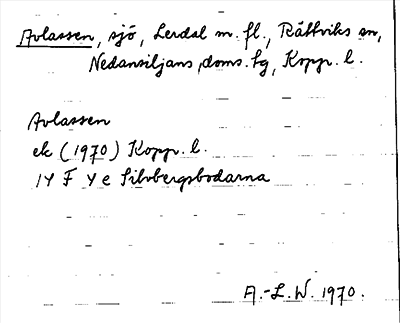 Avlassen, sjö, Lerdal m. fl., Rättviks sn,
Nedansiljans doms. tg, Kopp. l.
Avlassen
ek (1970) Kopp. l.
14 F 4 e Silvbergsbodarna
A.-L. W. 1970.